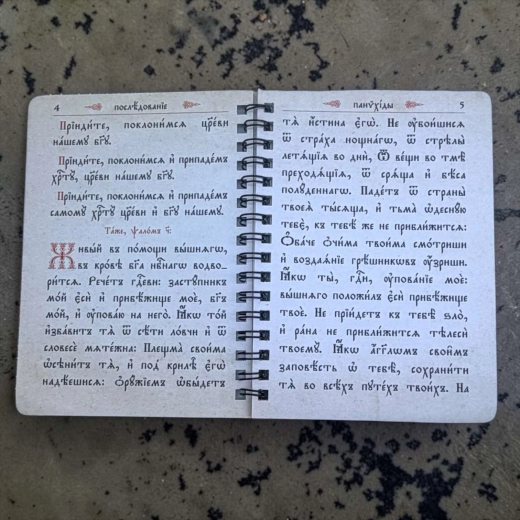 4 послѣ́дованїе
Прїиди́те, поклони́мсѧ цр҃е́ви
на́шемꙋ бг҃ꙋ.
Прїиди́те, поклони́мсѧ и҆ припаде́мъ
хрⷭ҇тꙋ̀, цр҃е́ви на́шемꙋ бг҃ꙋ.
Прїиди́те, поклони́мсѧ и҆ припаде́мъ
самомꙋ̀ хрⷭ҇тꙋ̀ цр҃е́ви и҆ бг҃ꙋ на́шемꙋ.
Та́же, ѱало́мъ ч҃:
Живы́й въ по́мощи вы́шнѧгѡ,
въ кро́вѣ бг҃а нбⷭ҇наго водво_
ри́тсѧ. Рече́тъ гдⷭ҇еви: застꙋ́пникъ
мо́й є҆сѝ и҆ прибѣ́жище моѐ, бг҃ъ
мо́й, и҆ ᲂу҆пова́ю на него̀. Ꙗ҆́кѡ то́й
и҆зба́витъ тѧ̀ ѿ сѣ́ти ло́вчи и҆ ѿ
словесѐ мѧте́жна: Плещма̀ свои́ма
ѡ҆сѣни́тъ тѧ̀, и҆ под̾ крилѣ̑ є҆гѡ̀
надѣ́ешисѧ: ѻ҆рꙋ́жїемъ ѡ҆бы́детъ
панѷхі́ды 5
тѧ̀ и҆́стина є҆гѡ̀. Не ᲂу҆бои́шисѧ
ѿ стра́ха нощна́гѡ, ѿ стрѣлы̀
летѧ́щїѧ во днѝ, Ѿ ве́щи во тмѣ̀
преходѧ́щїѧ, ѿ срѧ́ща и҆ бѣ́са
полꙋ́деннагѡ. Паде́тъ ѿ страны̀
твоеѧ̀ ты́сѧща, и҆ тьма̀ ѡ҆деснꙋ́ю
тебє̀, къ тебѣ́ же не прибли́житсѧ:
Ѻ҆ба́че ѻ҆чи́ма твои́ма смо́триши
и҆ воздаѧ́нїе грѣ́шникѡвъ ᲂу҆́зриши.
Ꙗ҆́кѡ ты̀, гдⷭ҇и, ᲂу҆пова́нїе моѐ:
вы́шнѧго положи́лъ є҆сѝ прибѣ́жище
твоѐ. Не прїи́детъ къ тебѣ̀ ѕло̀,
и҆ ра́на не прибли́житсѧ тѣлесѝ
твоемꙋ̀. Ꙗ҆́кѡ а҆́гг҃лѡмъ свои̑мъ
заповѣ́сть ѡ҆ тебѣ̀, сохрани́ти
тѧ̀ во всѣ́хъ пꙋте́хъ твои́хъ. На